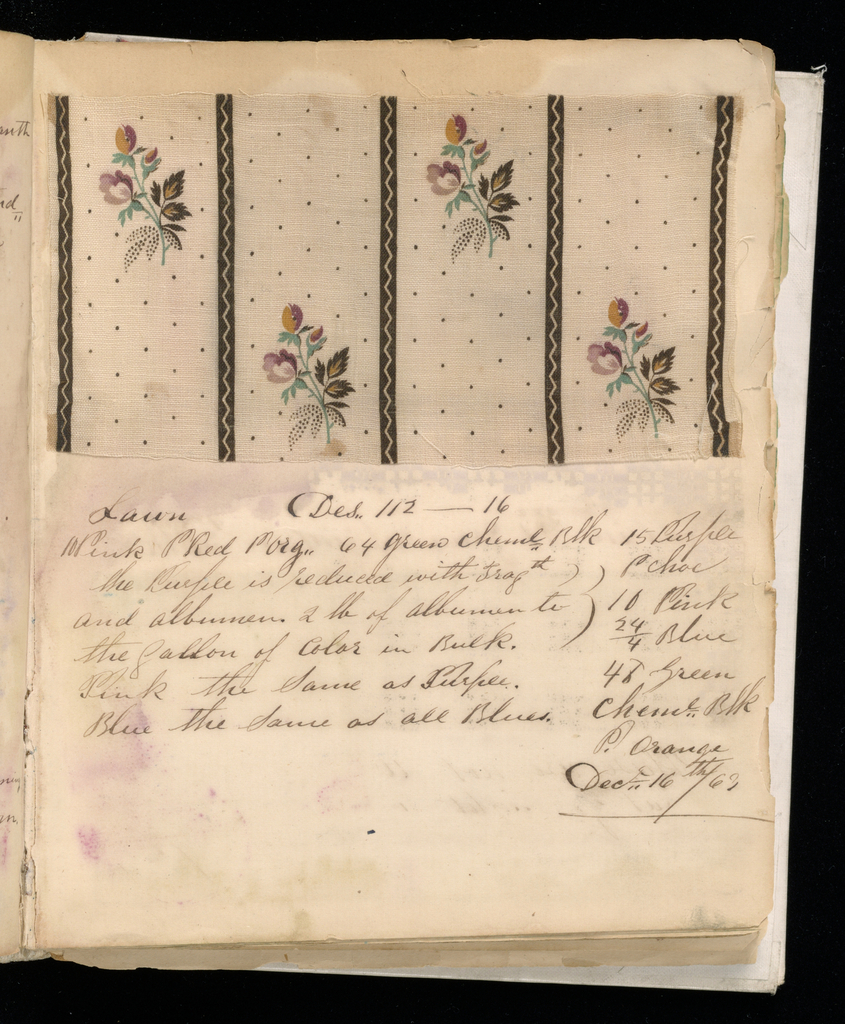 nth
d
Lawn Des. 112 — 16
10 Pink P Red P org.. 64 green Cheml Blk 15 Purple
the Purple is reduced with Tragth P Choc
and albumen. 2 lb of albumen to 10 Pink
the Gallon of Color in Bulk. 24/4 Blue
Pink the Same as Purple. 48 Green
Blue the Same as all Blues. Cheml Blk
P. Orange
Decr 16th/63